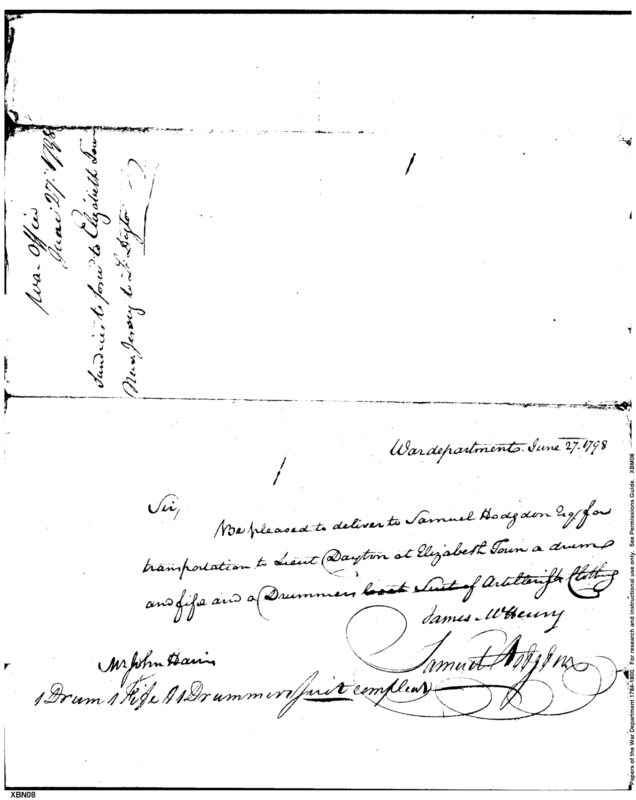 War Office
June 27. 1798
Sundries to forwd to Elizabeth Town
New Jersey to Lt. Dayton
War department June 27. 1798
Sir,
Be pleased to deliver to Samuel Hodgdon Esq for
transportation to Lieut Dayton at Elizabeth Town a drum
and fife and a Drummers coat Suit of Artillerists Clothing
James McHenry
Samuel Hodgdon
Mr John Harris
1 Drum 1 Fife & 1 Drummers suit compleat
Papers of the War Department 1784-1800. For research and instructional use only. See Permissions Guide. XBN08
XBN08